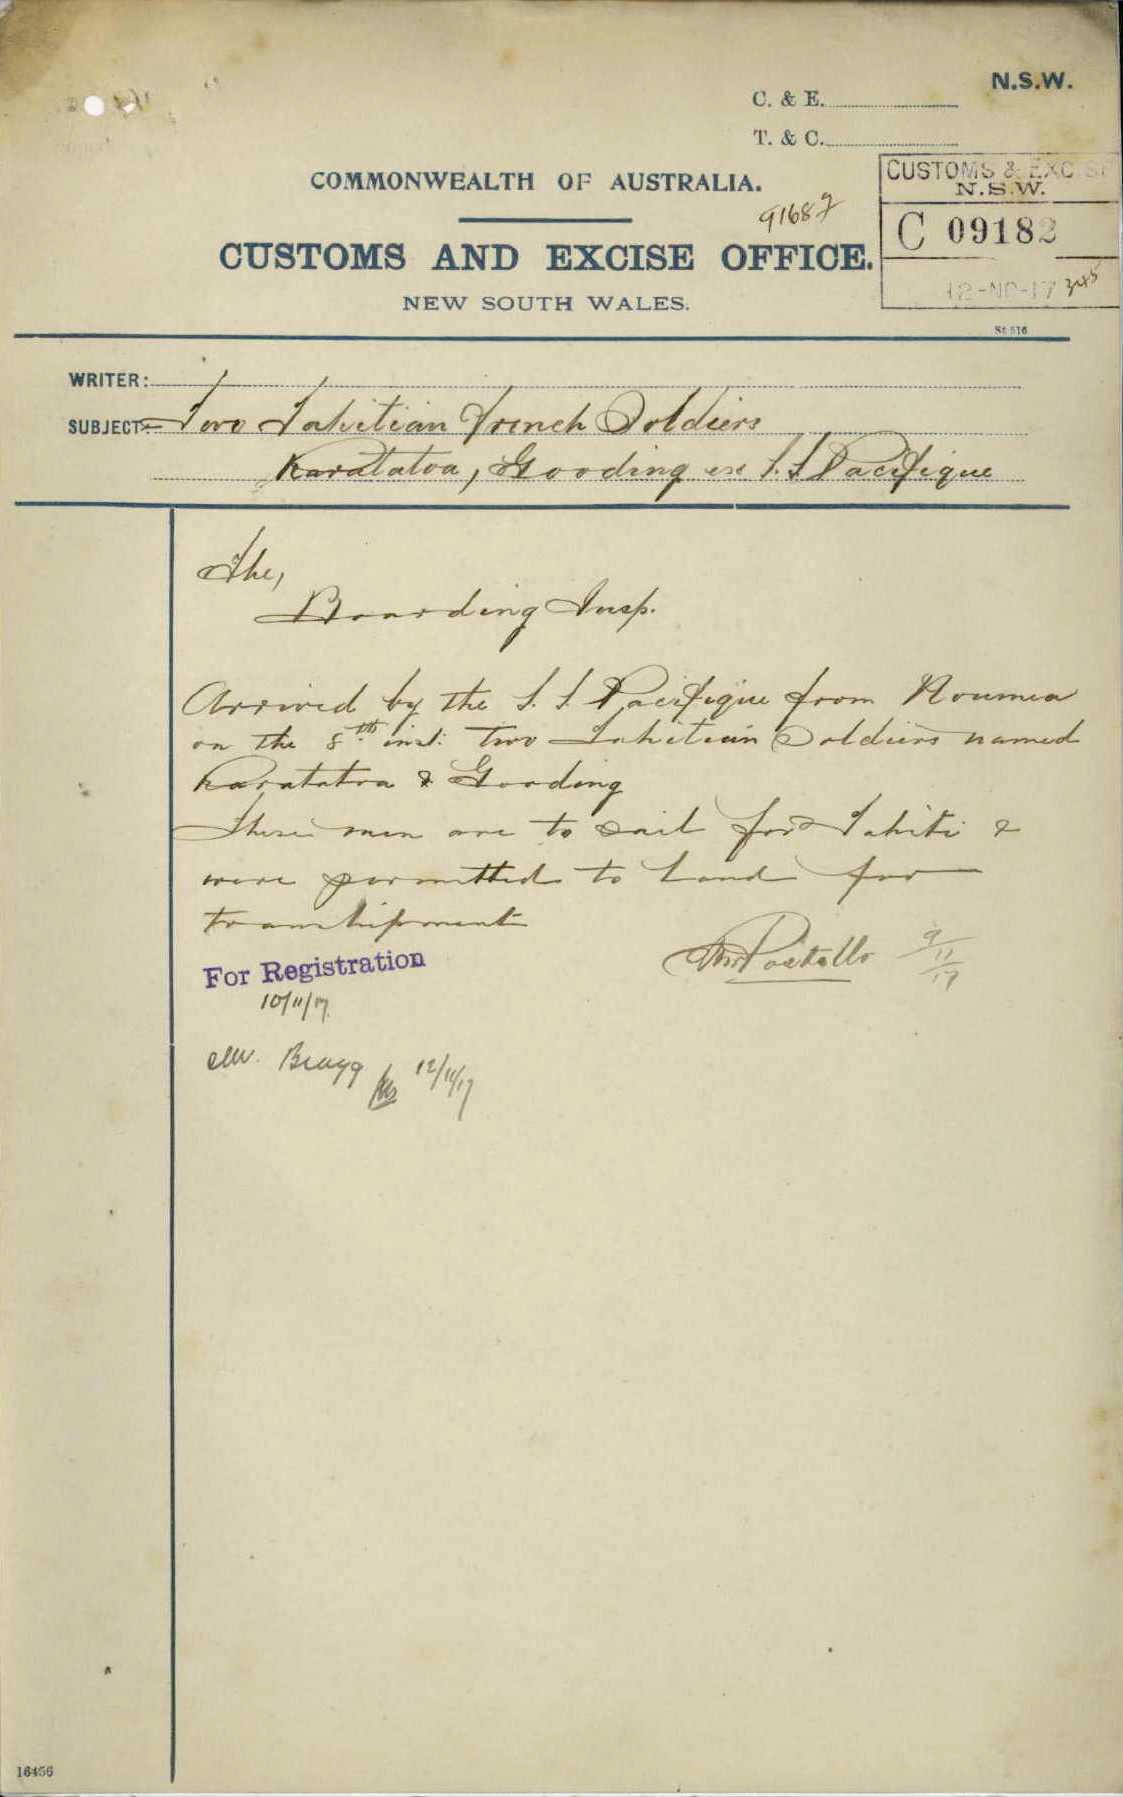 N.S.W.
C. & E.
T. & C.
CUSTOMS & EXCISE
N.S.W.
C 09182
12-NO-17 345
COMMONWEALTH OF AUSTRALIA.
91687
CUSTOMS AND EXCISE OFFICE.
NEW SOUTH WALES.
St. 516
WRITER:
SUBJECT:- Two Tahitian French Soldiers
Karatatoa, Gooding ex S.S Pacifique
The,
Boarding Insp.
Arrived by the S.S. Pacifique from Noumea
on the 8th inst: two Tahitian Soldiers named
Karatatoa & Gooding
These men are to sail for Tahiti &
were permitted to land for
transhipment
9/11/17
For Registration
10/11/17
Mr. Bragg 12/11/17
16456